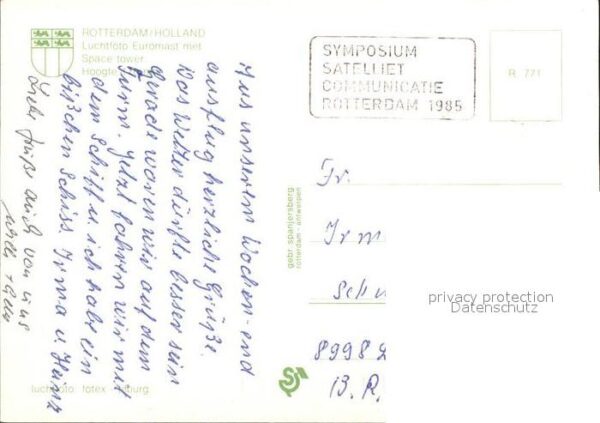 ROTTERDAM/HOLLAND
Luchtfoto Euromast met
Space tower.
Hoogte
SYMPOSIUM
SATELLIET
COMMUNICATIE
ROTTERDAM 1985
R 771
Aus unserem Wochenend
ausflug herzliche Grüße.
Das Wetter dürfte besser sein
Gerade waren wir auf dem
Turm. Jetzt fahren wir mit
dem Schiff u. ich habe ein
bißchen Schiss. Irma u. Heinz
Liebe Grüße auch von uns
gebr. spanjersberg
rotterdam - antwerpen
Fr.
Irm
Sch
8998
B.R.
luchtfoto: fotex
privacy protection
Datenschutz